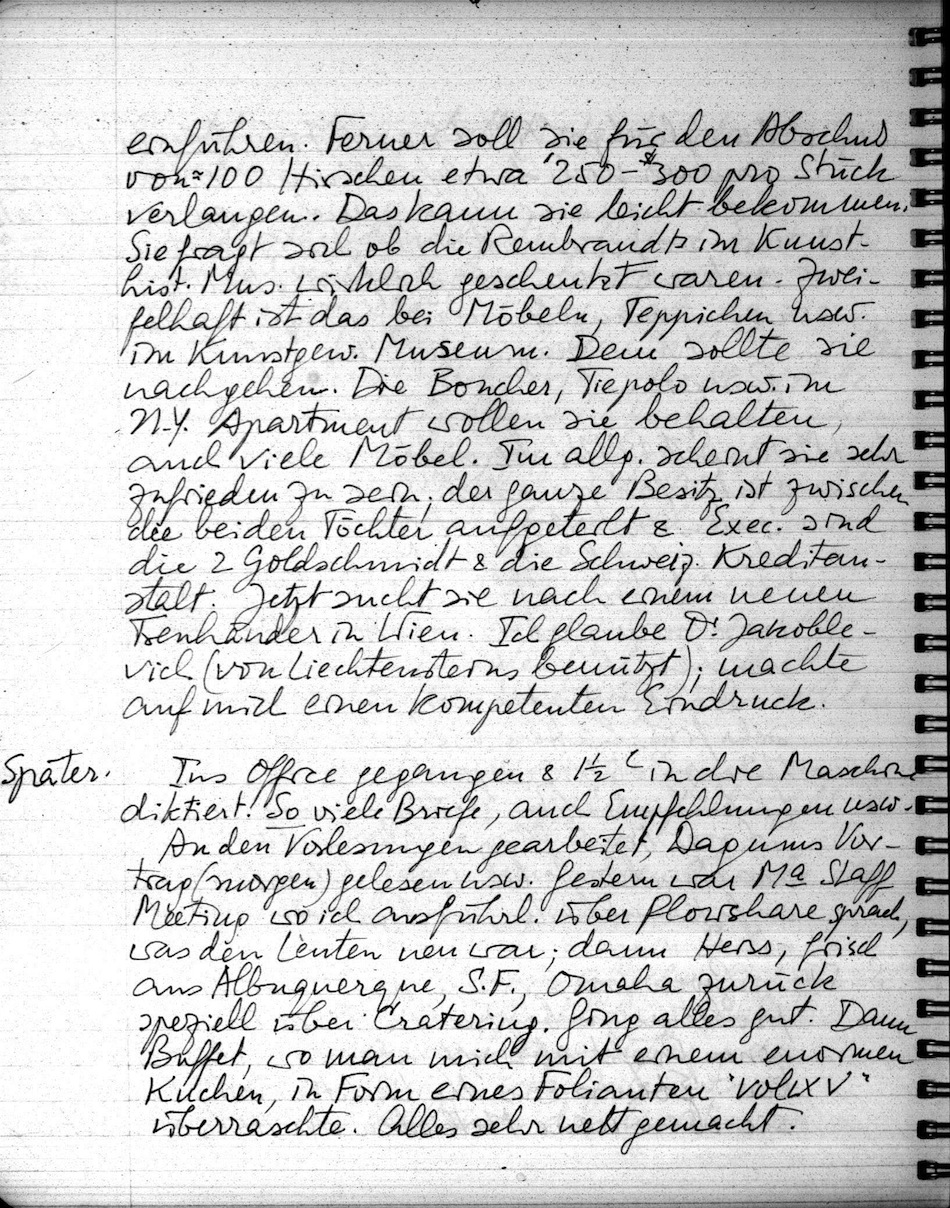 einführen. Ferner soll sie für den Abschuß
von ≈ 100 Hirschen etwa $250–$300 pro Stück
verlangen. Das kann sie leicht bekommen.
Sie fragt sich ob die Rembrandts im Kunst-
hist. Mus. wirklich geschenkt waren. Zwei-
felhaft ist das bei Möbeln, Teppichen usw.
im Kunstgew. Museum. Dem sollte sie
nachgehen. Die Boucher, Tiepolo usw. im
N.Y. Apartment wollen sie behalten,
auch viele Möbel. Im allg. scheint sie sehr
zufrieden zu sein; der ganze Besitz ist zwischen
die beiden Töchter aufgeteilt & Exec. sind
die 2 Goldschmidt & die Schweiz. Kreditan-
stalt. Jetzt sucht sie nach einem neuen
Treuhänder in Wien. Ich glaube Dr Jakoble-
vich (von Liechtensteins benützt); machte
auf mich einen kompetenten Eindruck.
Später. Ins Office gegangen & 1½ in die Maschine
diktiert! So viele Briefe, auch Empfehlungen usw.
An den Vorlesungen gearbeitet, Vor-
trag (morgen) gelesen usw. Gestern war Ma Staff
Meeting wo ich ausführl. über Plowshare sprach,
was den Leuten neu war; dann Herss, frisch
aus Albuquerque, S.F., Omaha zurück
speziell über Cratering. Ging alles gut. Dann
Buffet, wo man mich mit einem enormen
Kuchen, in Form eines Folianten "Vol LXV"
überraschte. Alles sehr nett gemacht.